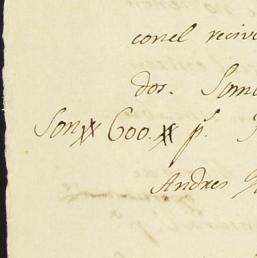 conel reciv
dos. Som
Son 600. p.s
Andres